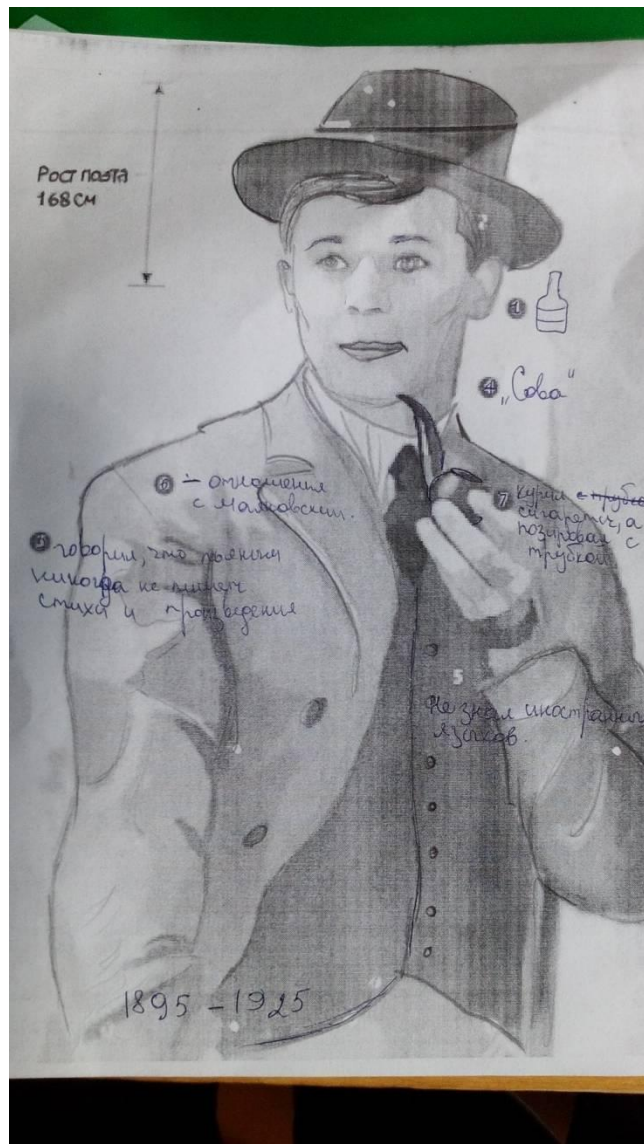 Рост поэта
168 см
1
4 „Сова"
6 – отношения
с Маяковским.
7 курил с трубко
сигареты, а
позировал с
трубкой
3 говорил, что пьяным
никогда не пишет
стихи и произведения
5
Не знал иностранных
языков.
1895 – 1925